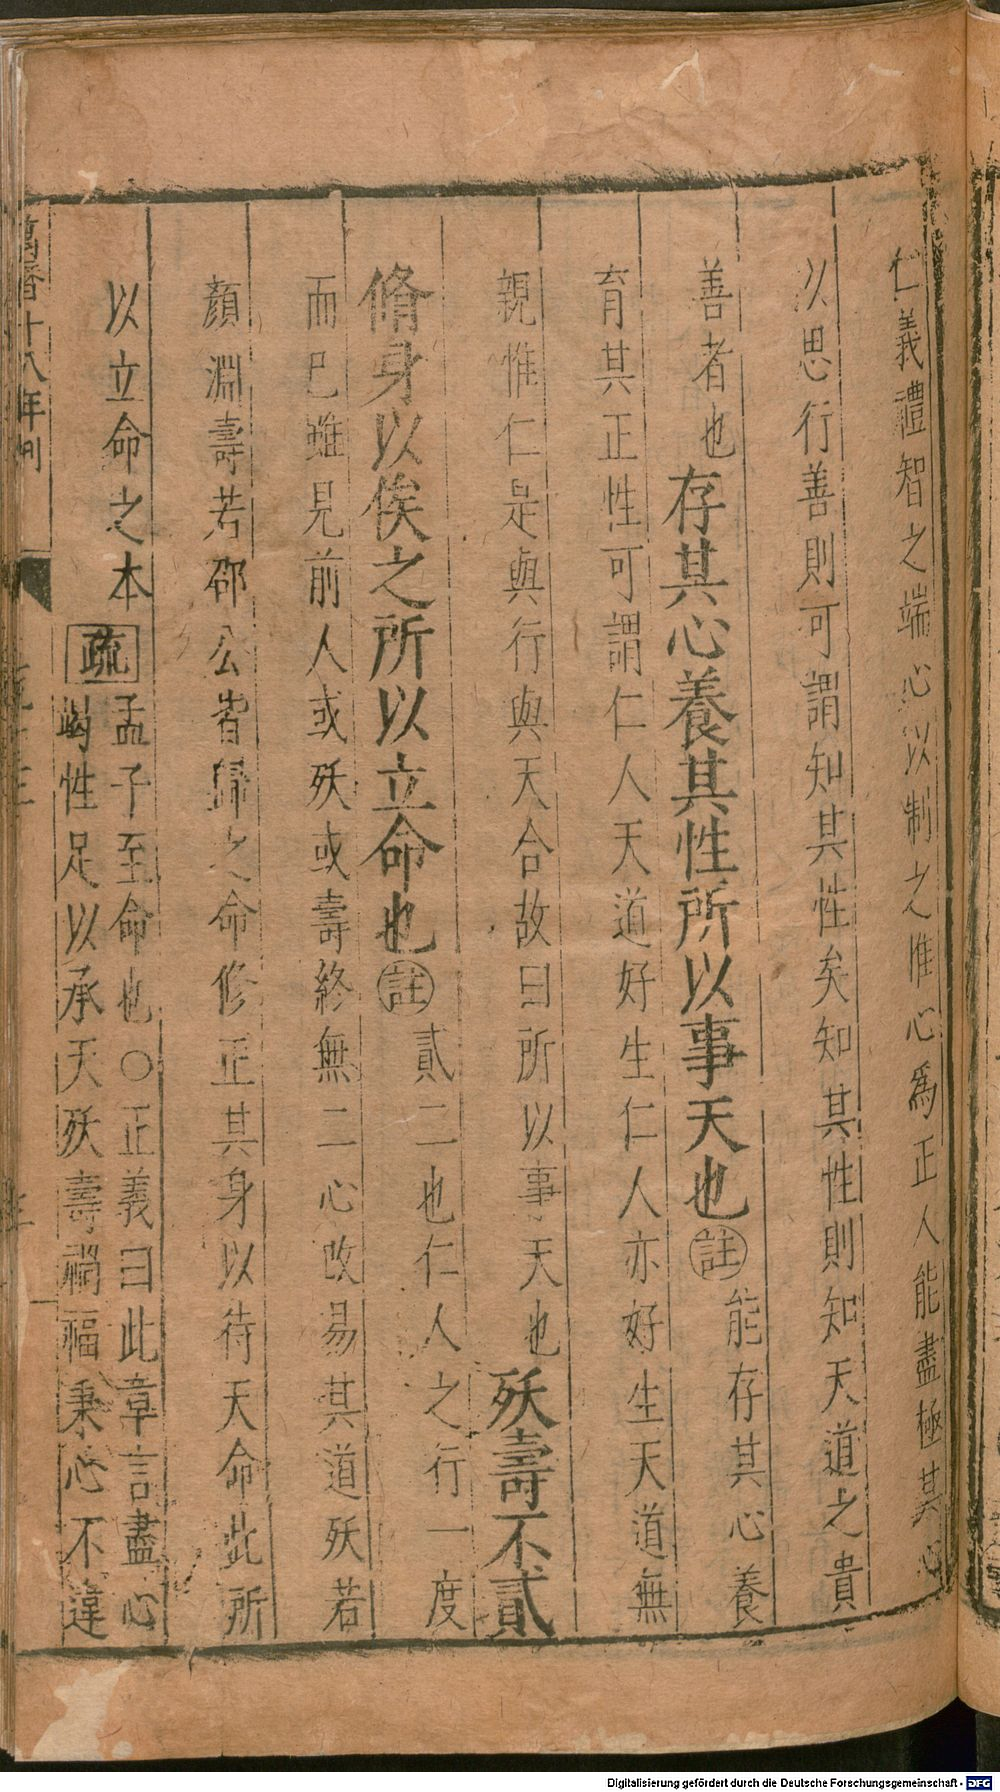 仁義禮智之端心以制之惟心爲正人能盡極其心
以思行善則可謂知其性矣知其性則知天道之貴
善者也存其心養其性所以事天也註能存其心養
育其正性可謂仁人天道好生仁人亦好生天道無
親惟仁是與行與天合故曰所以事天也殀壽不貳
脩身以俟之所以立命也註貳二也仁人之行一度
而已雖見前人或殀或壽終無二心改易其道殀若
顏淵壽若邵公皆歸之命修正其身以待天命此所
以立命之本疏孟子至命也○正義曰此章言盡心
竭性足以承天殀壽禍福秉心不違
萬曆十八年刊
Digitalisierung gefördert durch die Deutsche Forschungsgemeinschaft - DFG